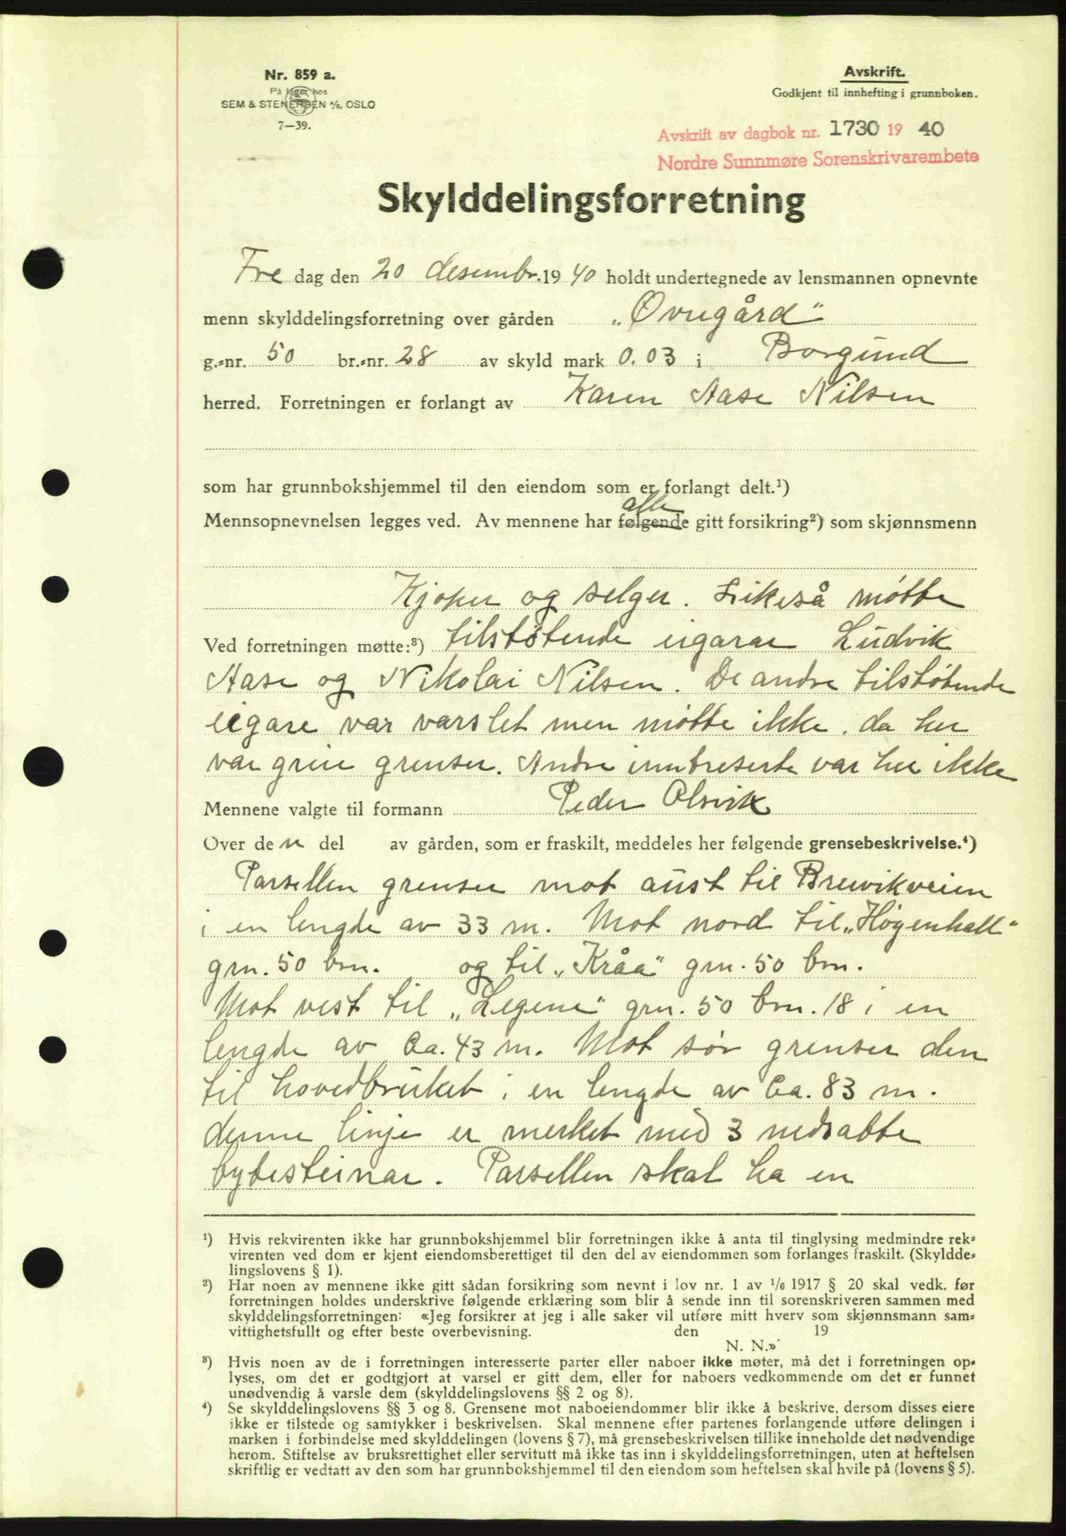 Nr. 859 a.
På lager hos
SEM & STENERSEN A/S. OSLO
7—39.
Avskrift.
Godkjent til innhefting i grunnboken.
Avskrift av dagbok nr. 1730 19 40
Nordre Sunnmøre Sorenskrivarembete
Skylddelingsforretning
Fre dag den 20 desembr. 19 40 holdt undertegnede av lensmannen opnevnte
menn skylddelingsforretning over gården „Øvregård“
g.-nr. 50 br.-nr. 28 av skyld mark 0.03 i Borgund
herred. Forretningen er forlangt av Karen Aase Nilsen
som har grunnbokshjemmel til den eiendom som er forlangt delt.¹)
alle
Mennsopnevnelsen legges ved. Av mennene har følgende gitt forsikring²) som skjønnsmenn
Kjøper og selger. Likeså møtte
Ved forretningen møtte:³) tilstøtende eigarar Ludvik
Aase og Nikolai Nilsen. De andre tilstøtende
eigare var varslet men møtte ikke. da her
var greie grenser. Andre inntreserte var her ikke
Mennene valgte til formann Peder Alsvik
Over den del av gården, som er fraskilt, meddeles her følgende grensebeskrivelse.⁴)
Parsellen grenser mot aust til Breivikveien
i en lengde av 33 m. Mot nord til „Høgenhall“
grn. 50 brn. og til „Kråa“ grn. 50 brn.
Mot vest til „Legene“ grn. 50 brn. 18 i en
lengde av Ca. 43 m. Mot sør grenser den
til hovedbruket i en lengde av Ca. 83 m.
denne linje er merket med 3 nedsatte
bytesteinar. Parsellen skal ha en
¹) Hvis rekvirenten ikke har grunnbokshjemmel blir forretningen ikke å anta til tinglysing medmindre rek-
virenten ved dom er kjent eiendomsberettiget til den del av eiendommen som forlanges fraskilt. (Skyldde-
lingslovens § 1).
²) Har noen av mennene ikke gitt sådan forsikring som nevnt i lov nr. 1 av ¹/₆ 1917 § 20 skal vedk. før
forretningen holdes underskrive følgende erklæring som blir å sende inn til sorenskriveren sammen med
skylddelingsforretningen: «Jeg forsikrer at jeg i alle saker vil utføre mitt hverv som skjønnsmann sam-
vittighetsfullt og efter beste overbevisning. den 19
N. N.»
³) Hvis noen av de i forretningen interesserte parter eller naboer ikke møter, må det i forretningen op-
lyses, om det er godtgjort at varsel er gitt dem, eller for naboers vedkommende om det er funnet
unødvendig å varsle dem (skylddelingslovens §§ 2 og 8).
⁴) Se skylddelingslovens §§ 3 og 8. Grensene mot naboeiendommer blir ikke å beskrive, dersom disses eiere
ikke er tilstede og samtykker i beskrivelsen. Skal mennene efter partenes forlangende utføre delingen i
marken i forbindelse med skylddelingen (lovens § 7), må grensebeskrivelsen tillike inneholde det nødvendige
herom. Stiftelse av bruksrettighet eller servitutt må ikke tas inn i skylddelingsforretningen, uten at heftelsen
skriftlig er vedtatt av den som har grunnbokshjemmel til den eiendom som heftelsen skal hvile på (lovens § 5).